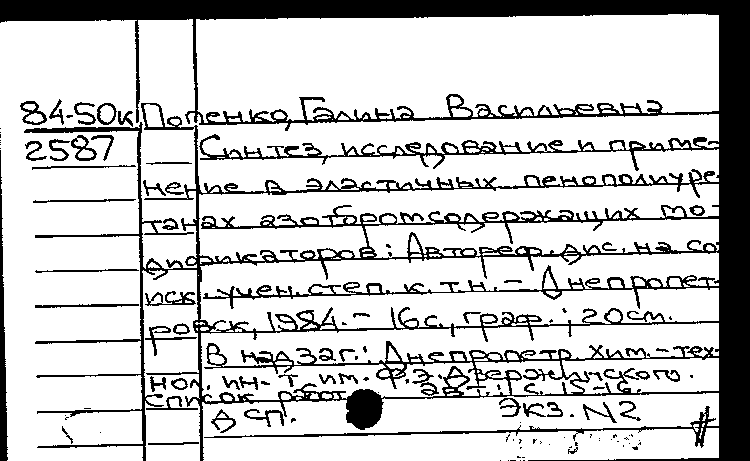 84-50к Попенко, Галина Васильевна
2587 Синтез, исследование и приме-
нение в эластичных пенополиуре-
танах азотборотсодержащих мо-
дификаторов: Автореф. дис. на со
иск. учен. степ. к. т. н. - Днепропет-
ровск, 1984. - 16 с., граф.; 20 см.
В надзаг.: Днепропетр. хим.-тех-
нол. ин-т им. Ф.Э. Дзержинского.
Список работ авт.: с. 15-16.
Д сп. Экз. N2